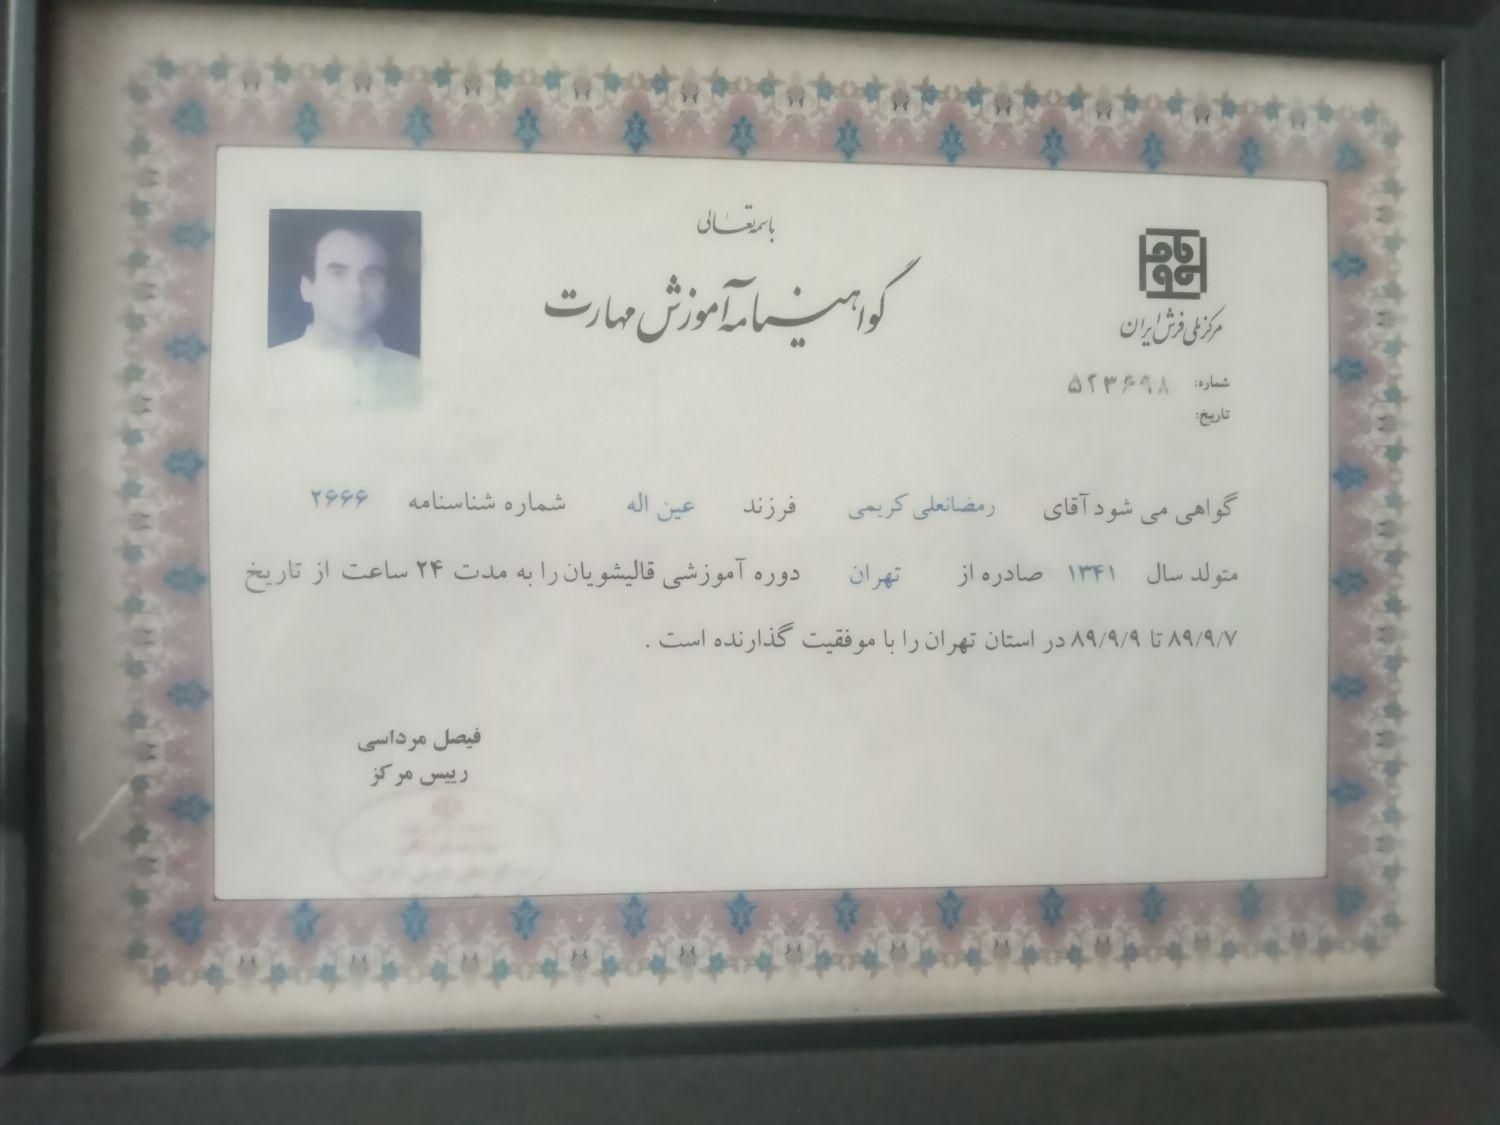 باسمه‌تعالی
گواهینامه آموزش مهارت
مرکز ملی فرش ایران
شماره: ۵۲۳۶۹۸
تاریخ:
گواهی می شود آقای رمضانعلی کریمی فرزند عین اله شماره شناسنامه ۲۶۶۶
متولد سال ۱۳۴۱ صادره از تهران دوره آموزشی قالیشویان را به مدت ۲۴ ساعت از تاریخ
۸۹/۹/۷ تا ۸۹/۹/۹ در استان تهران را با موفقیت گذارنده است .
فیصل مرداسی
رییس مرکز